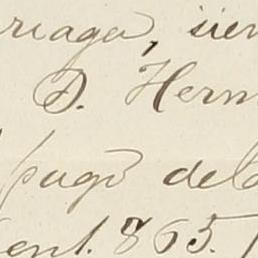 rriaga, sien
D. Hern
pago del
ent. 865.